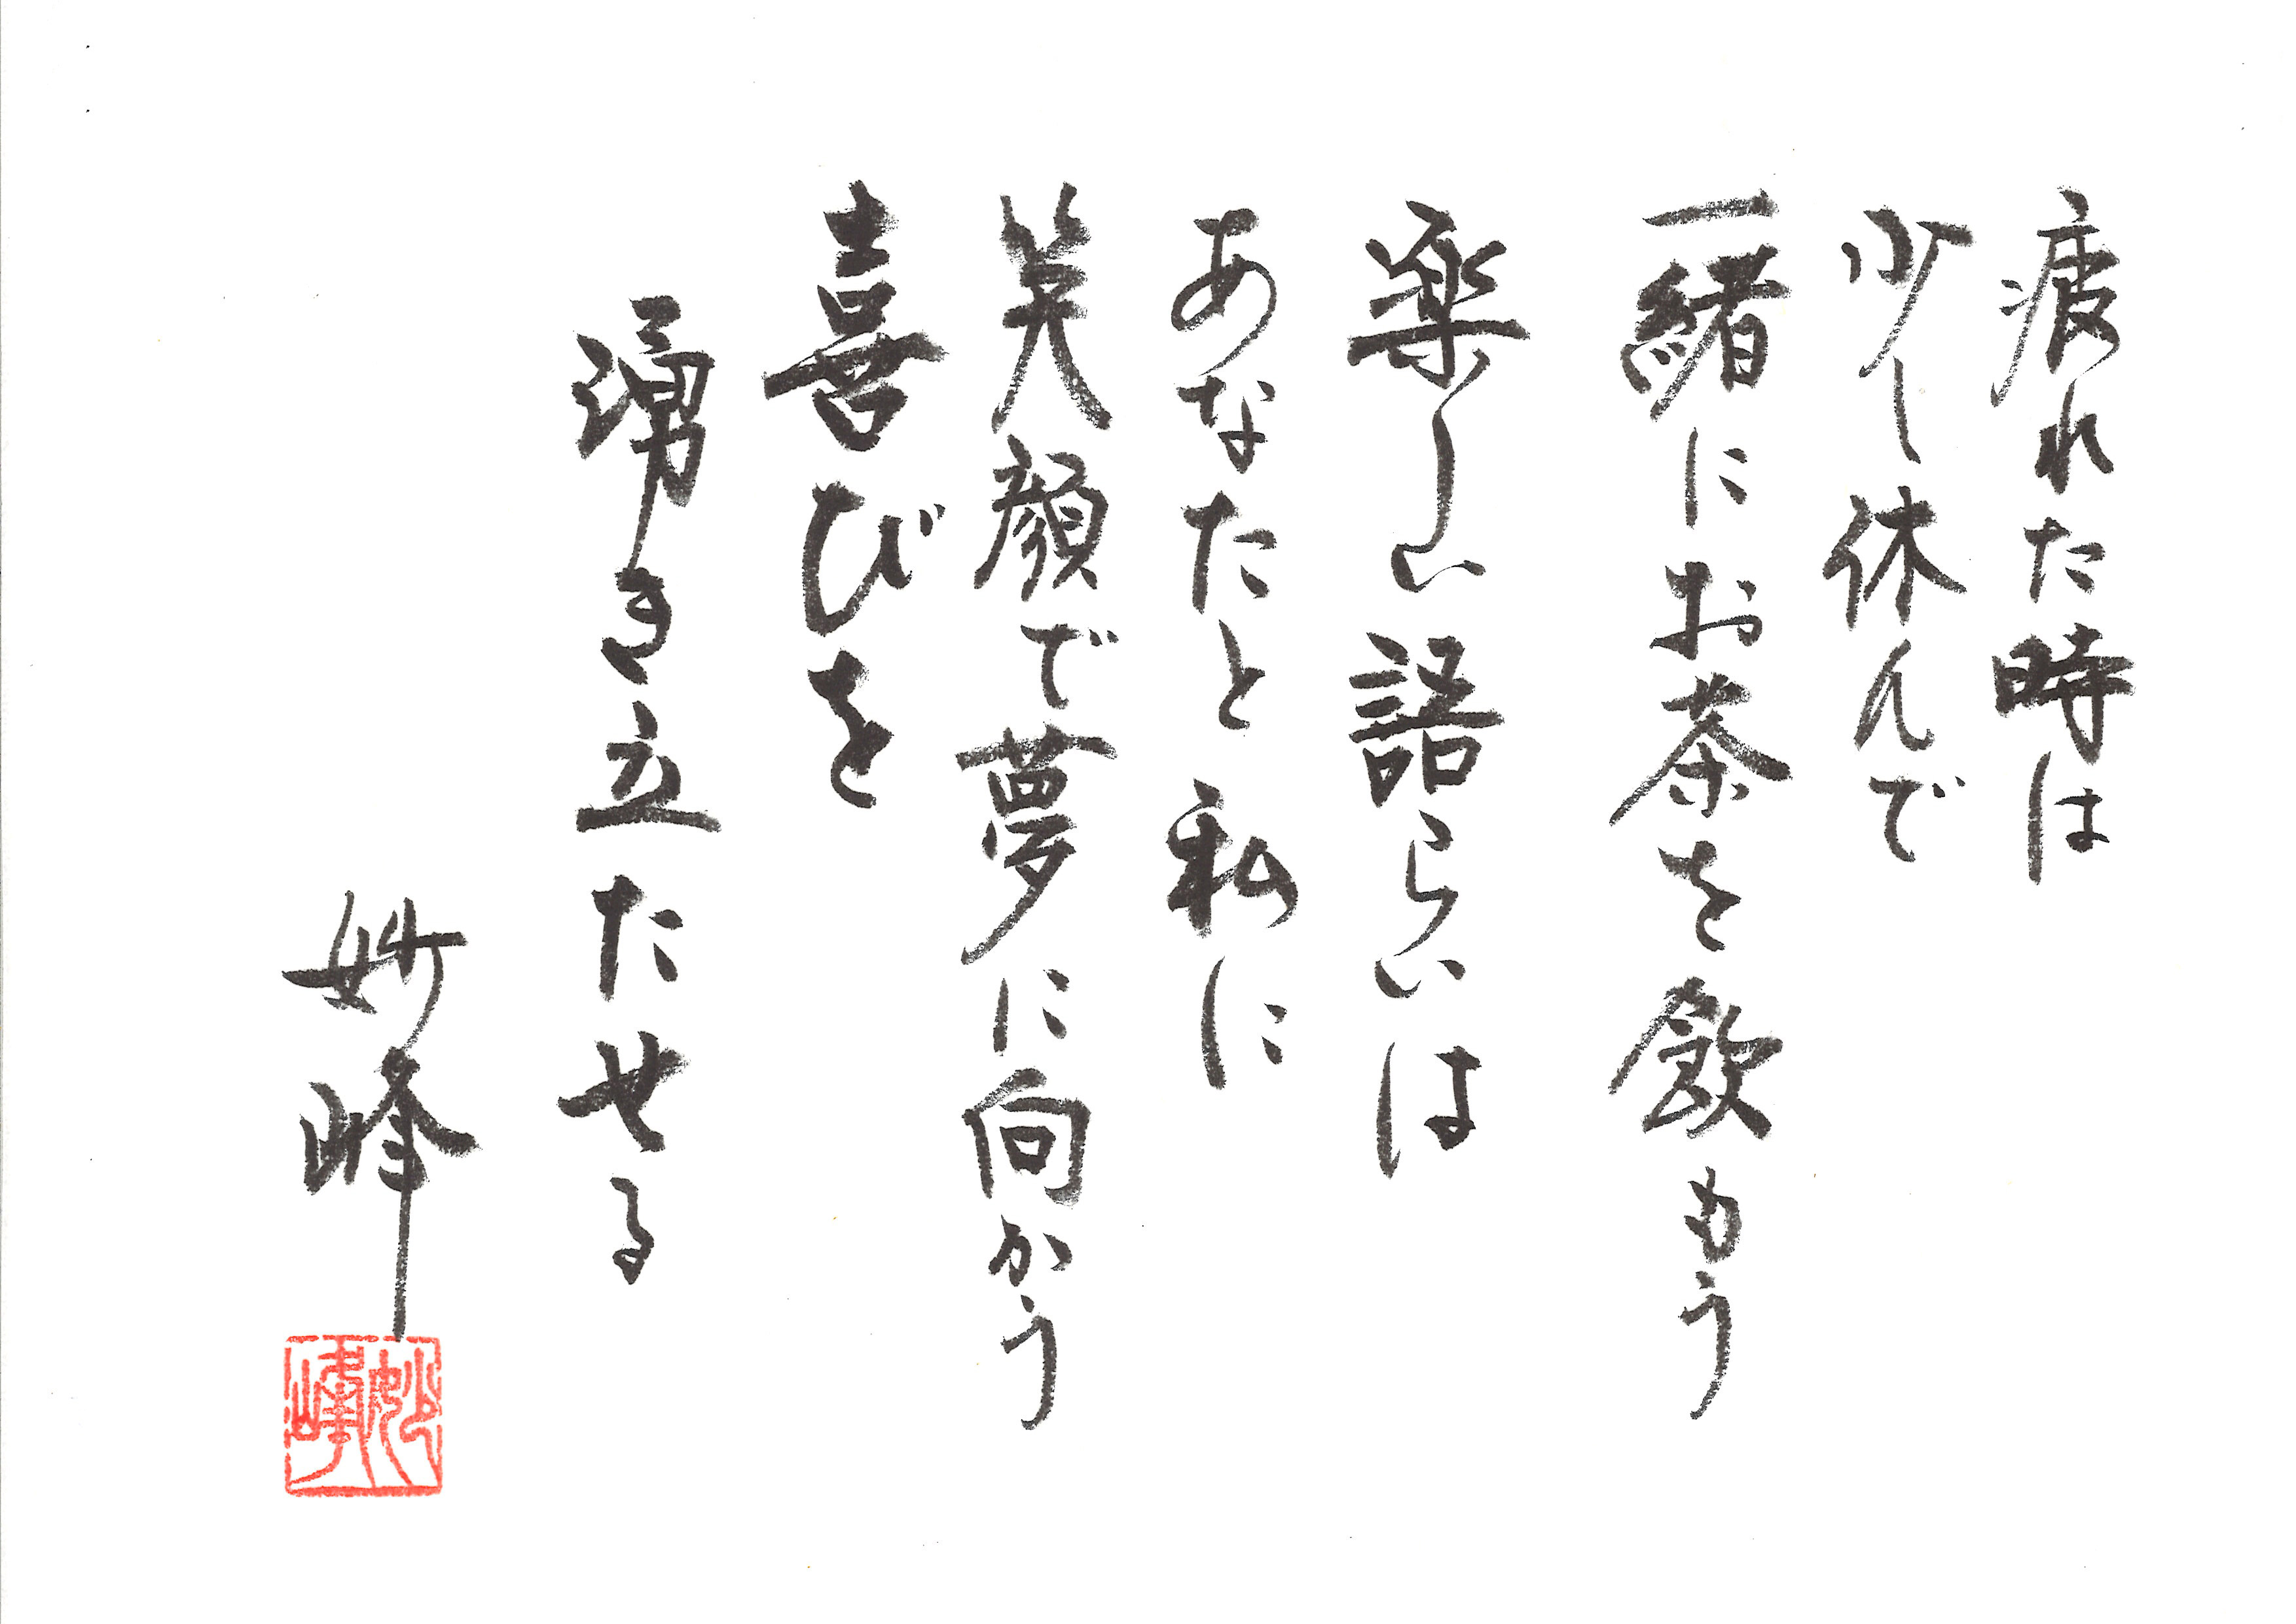 疲れた時は
少し休んで
一緒にお茶を飲もう
楽しい語らいは
あなたと私に
笑顔で夢に向かう
喜びを
湧き立たせる
妙峰
妙峰